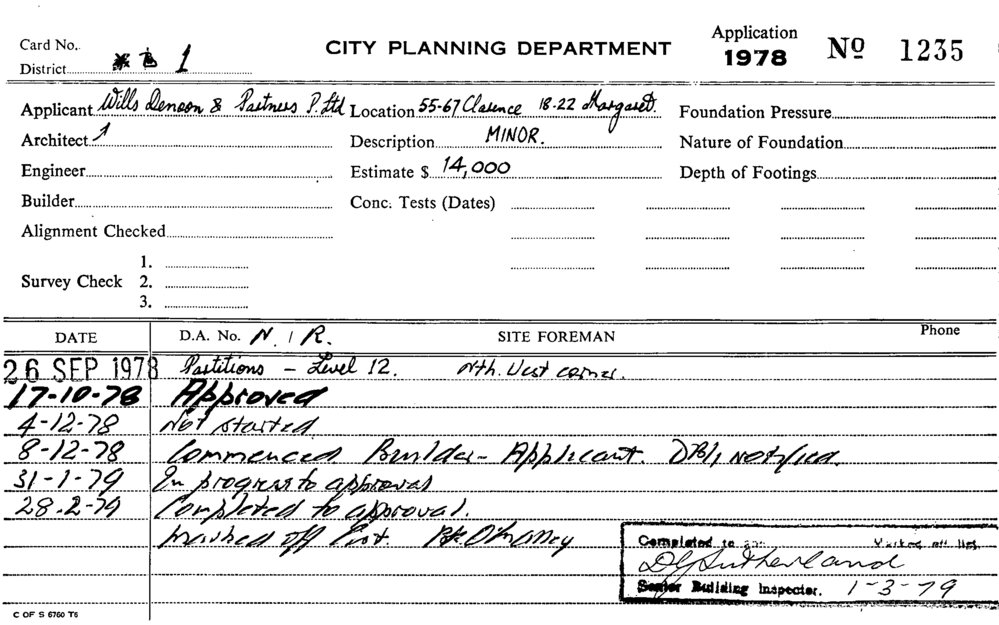 Card No.
District 1
CITY PLANNING DEPARTMENT
Application
1978 No 1235
Applicant Wills Denoon & Partners P. Ltd
Location 55-67 Clarence 18-22 Margaret.
Foundation Pressure
Architect
Description MINOR.
Nature of Foundation
Engineer
Estimate $ 14,000
Depth of Footings
Builder
Conc. Tests (Dates)
Alignment Checked
Survey Check 1.
2.
3.
DATE D.A. No. N / R. SITE FOREMAN Phone
26 SEP 1978 Partitions - Level 12. Nth. West corner.
17-10-78 Approved
4-12-78 Not started
8-12-78 Commenced Builder - Applicant. notified.
31-1-79 In progress to approval
28.2-79 Completed to approval.
marked off
Completed to
Marked off list.
Senior Building Inspector. 1-3-79
C OF S 6760 T6